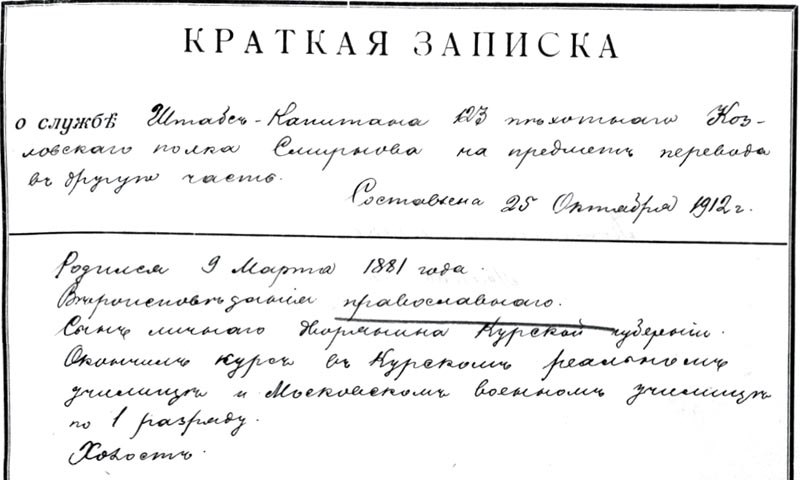 КРАТКАЯ ЗАПИСКА
о службѣ Штабсъ-Капитана 123 пѣхотнаго Коз-
ловскаго полка Смирнова на предметъ перевода
въ другую часть.
Составлена 25 Октября 1912 г.
Родился 9 Марта 1881 года.
Вѣроисповѣданія православнаго.
Сынъ личнаго дворянина Курской губерніи.
Окончилъ курсъ въ Курскомъ реальномъ
училищѣ и Московскомъ военномъ училищѣ
по 1 разряду.
Холостъ.